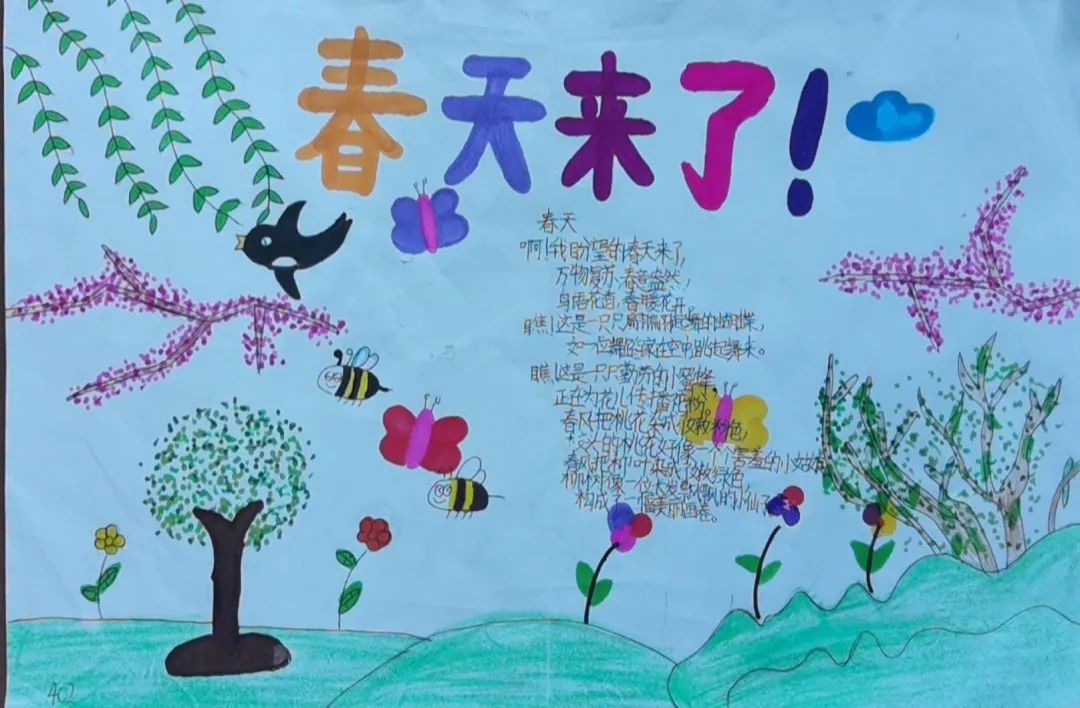 春天来了!
春天
啊!我盼望的春天来了,
万物复苏,春意盎然,
鸟语花香,春暖花开。
瞧!这是一只只翩翩起舞的蝴蝶,
如一位舞蹈家在空中跳起舞来。
瞧!这是一只只勤劳的小蜜蜂
正在为花儿传播花粉。
春风把桃花染成嫩粉色,
的桃花好像一个个害羞的小姑娘
春风把柳叶染成嫩绿色
柳树像一位长发飘飘的小仙子
构成了一幅美丽画卷。
402